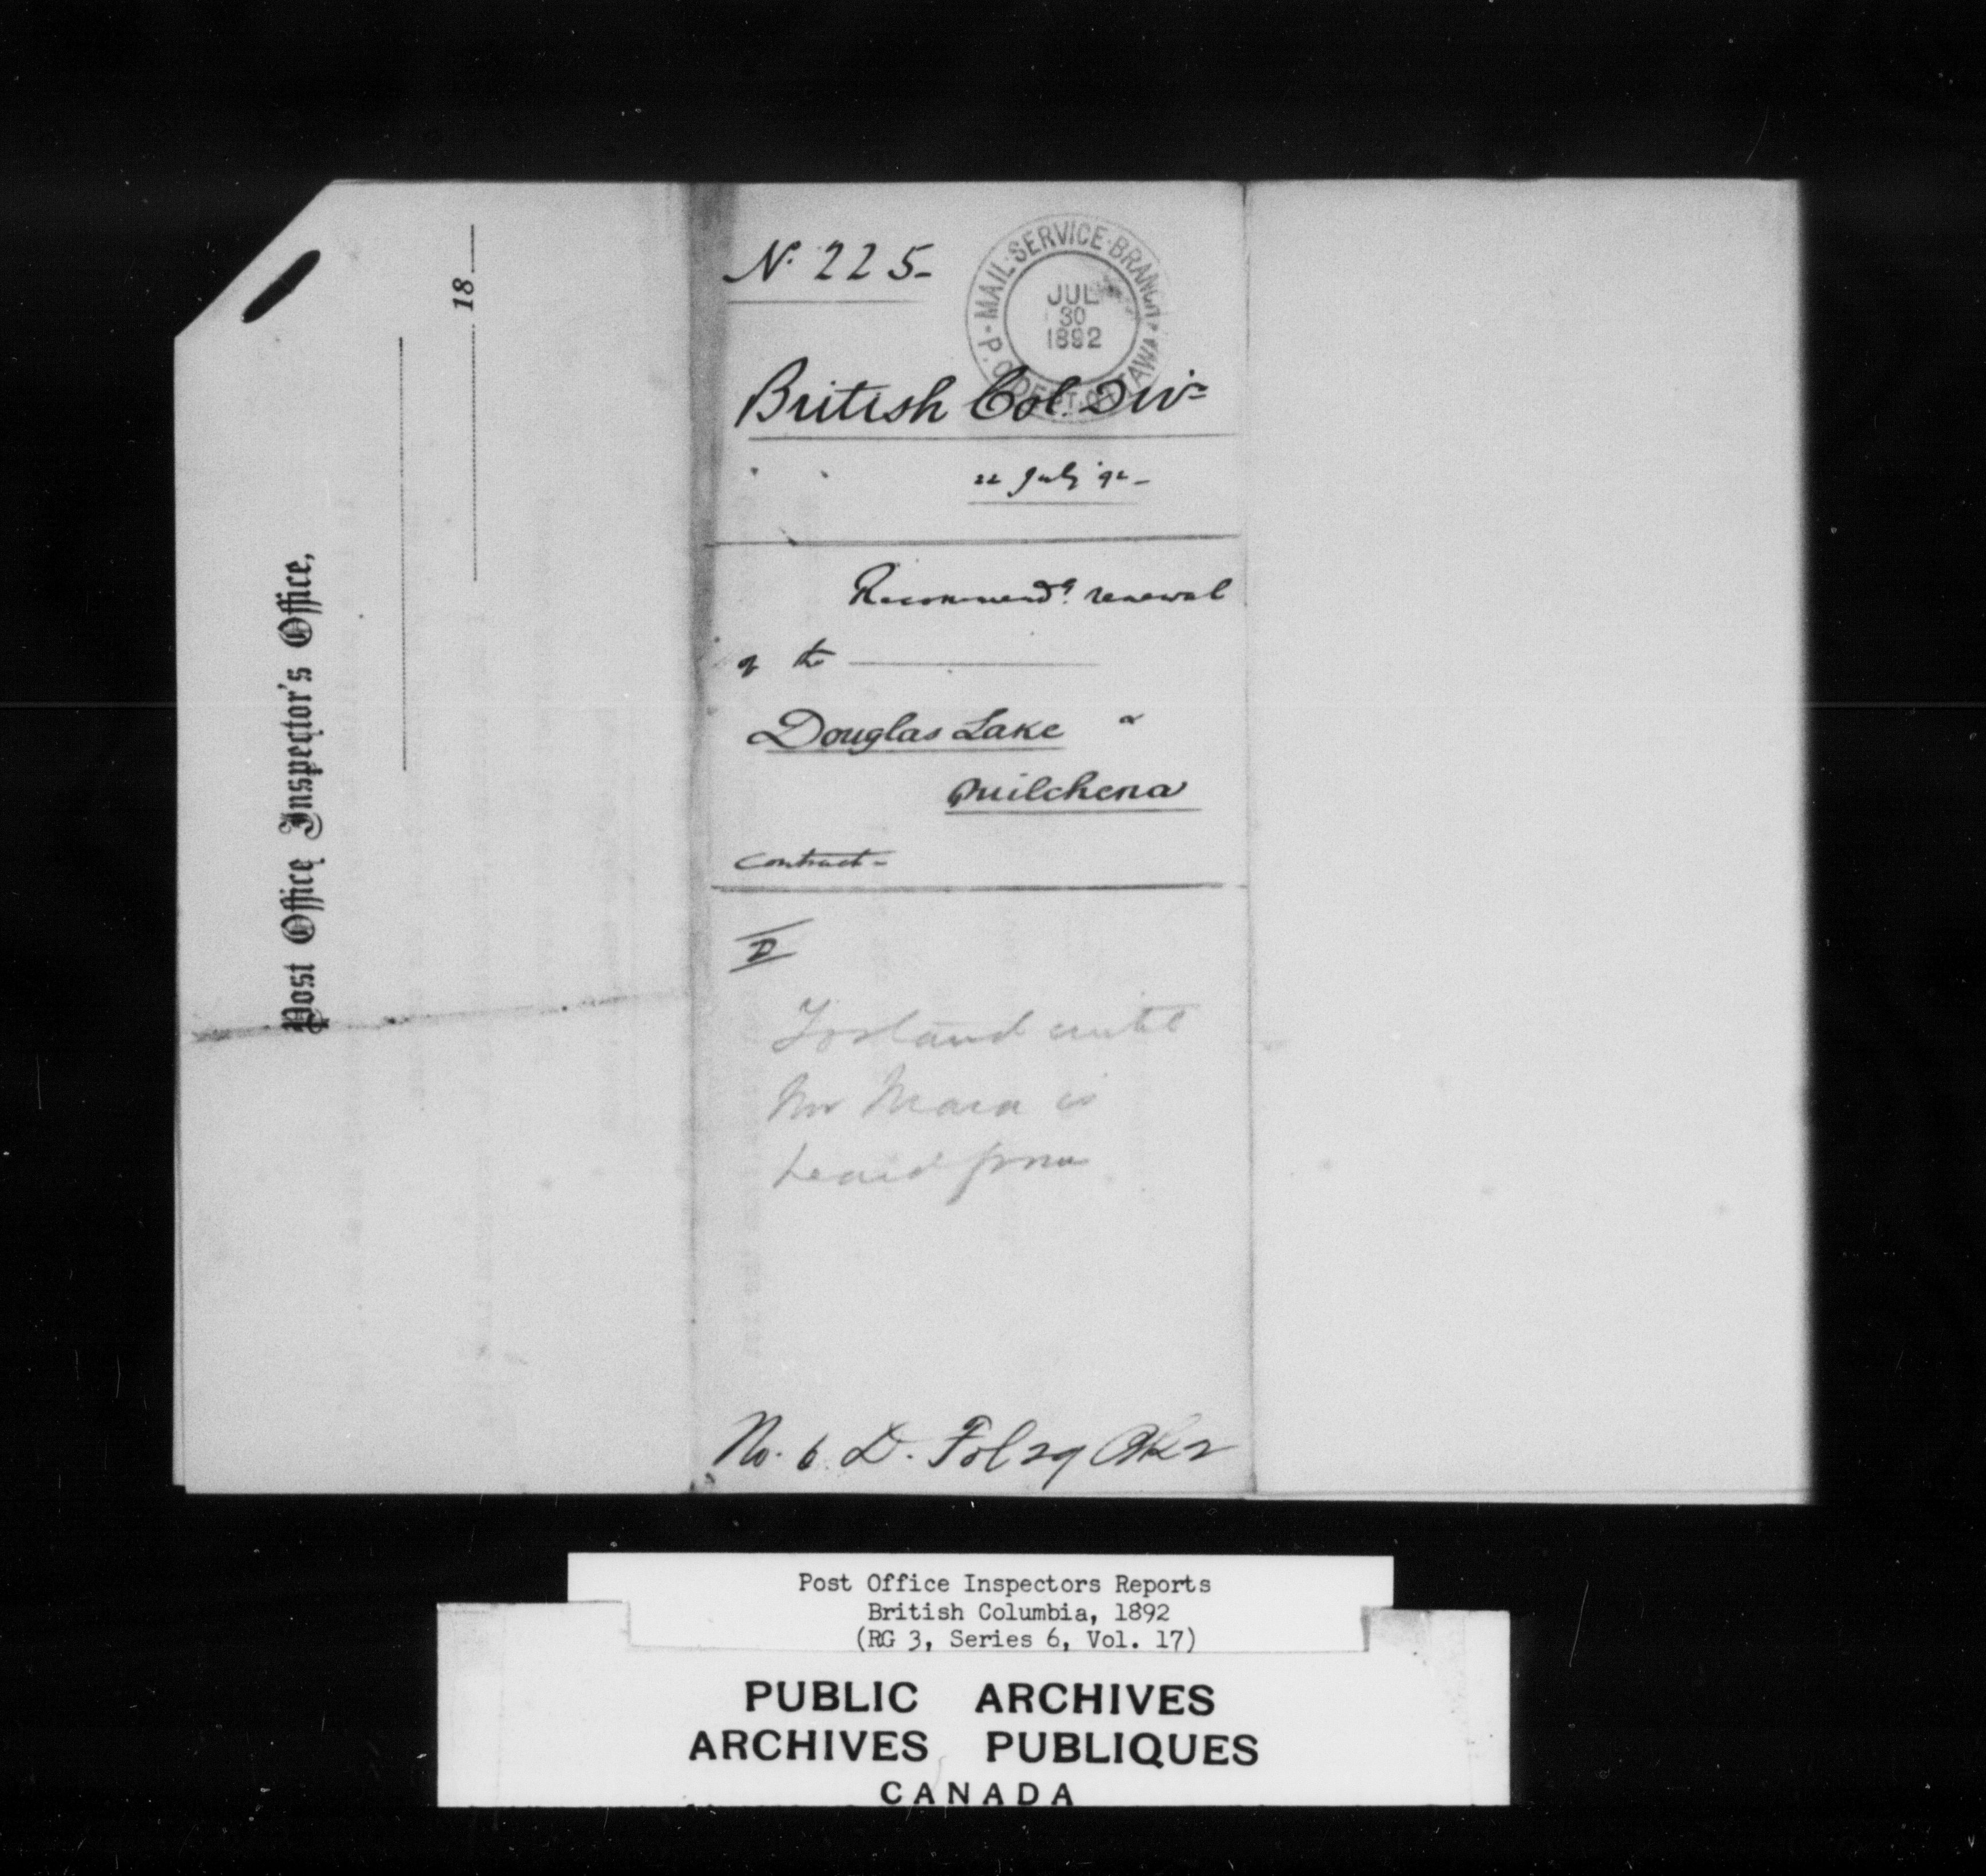 Post Office Inspector's Office,
18
N. 225-
MAIL·SERVICE·BRANCH
P.O. DEPT. OTTAWA
JUL
30
1892
British Col. Divn
22 July '92-
Recommendg. renewal
of the
Douglas Lake &
Quilchena
Contract-
D
To stand until
Mr Mara is
heard from
No. 6 D. Fol 29
Post Office Inspectors Reports
British Columbia, 1892
(RG 3, Series 6, Vol. 17)
PUBLIC ARCHIVES
ARCHIVES PUBLIQUES
CANADA